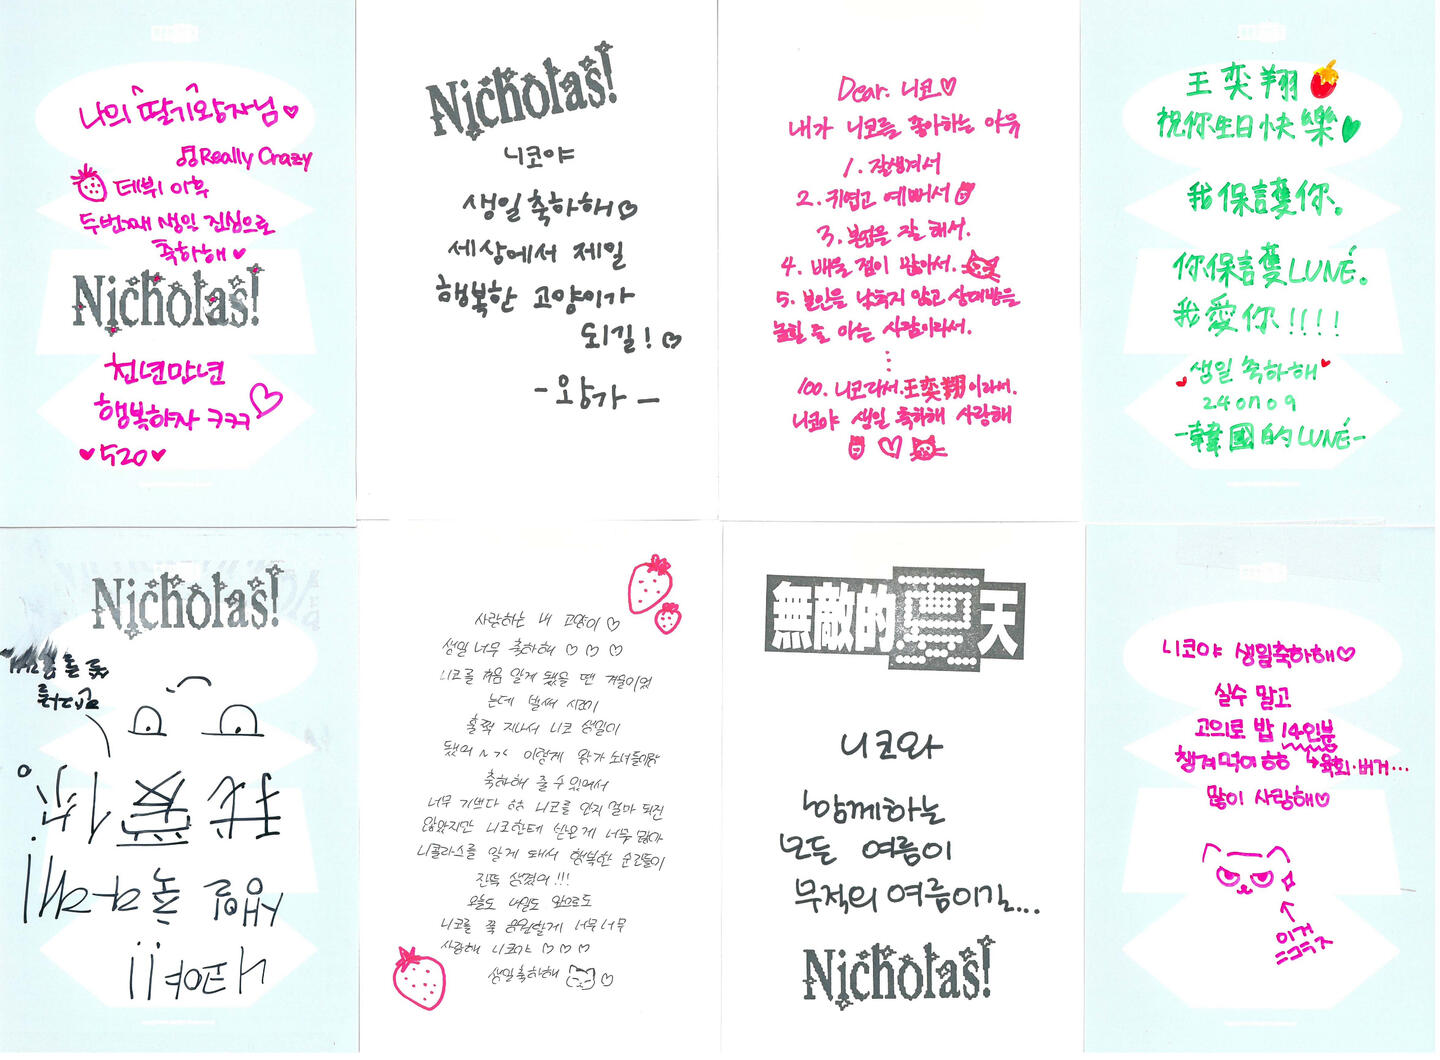 나의 "딸기"왕자님♥
♫Really Crazy
데뷔 이후
두번째 생일 진심으로
축하해♥
Nicholas!
천년만년
행복하자 ㅋㅋㅋ
♥520♥
Nicholas!
니코야
생일축하해♡
세상에서 제일
행복한 고양이가
되길!♡
-왕가-
Dear. 니코♡
내가 니코를 좋아하는 이유
1. 잘생겨서
2. 귀엽고 예뻐서
3. 본업을 잘 해서.
4. 배울 점이 많아서.
5. 본인을 낮추지 않고 상대방을
높힐 줄 아는 사람이라서.
⋮
100. 니코라서. 王奕翔이라서.
니코야 생일 축하해 사랑해
王奕翔
祝你生日快樂
我保護你.
你保護LUNÉ.
我愛你!!!!
생일 축하해
240709
-韓國的LUNÉ-
Nicholas!
니코야!!
생일 축하해!
我愛你
사랑하는 내 고양이♡
생일 너무 축하해 ♡♡♡
니코를 처음 알게 됐을 땐 겨울이었
는데 벌써 시간이
훌쩍 지나서 니코 생일이
됐어 ㅠㅠ 이렇게 왕가 소녀들이랑
축하해 줄 수 있어서
너무 기쁘다 ㅎㅎ 니코를 안지 얼마 되진
않았지만 니코한테 받은게 너무 많아
니콜라스를 알게 돼서 행복한 순간들이
진짜 생겼어!!!
오늘도 내일도 앞으로도
니코를 쭉 응원할게 너무너무
사랑해 니코야 ♡♡♡
생일축하해 ♡
無敵的夏天
니코와
함께하는
모든 여름이
무적의 여름이길...
Nicholas!
니코야 생일축하해♡
실수 말고
고의로 밥 14인분
챙겨먹어ㅎㅎ ↳육회·버거...
많이 사랑해♡
이거
ニコラス